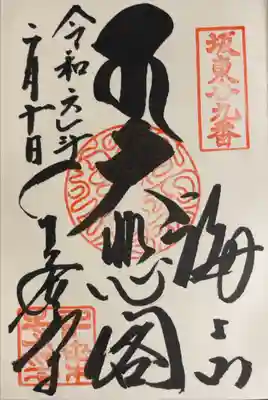 坂東廿九番
海上山
大悲閣
千葉寺
令和六年
二月十日